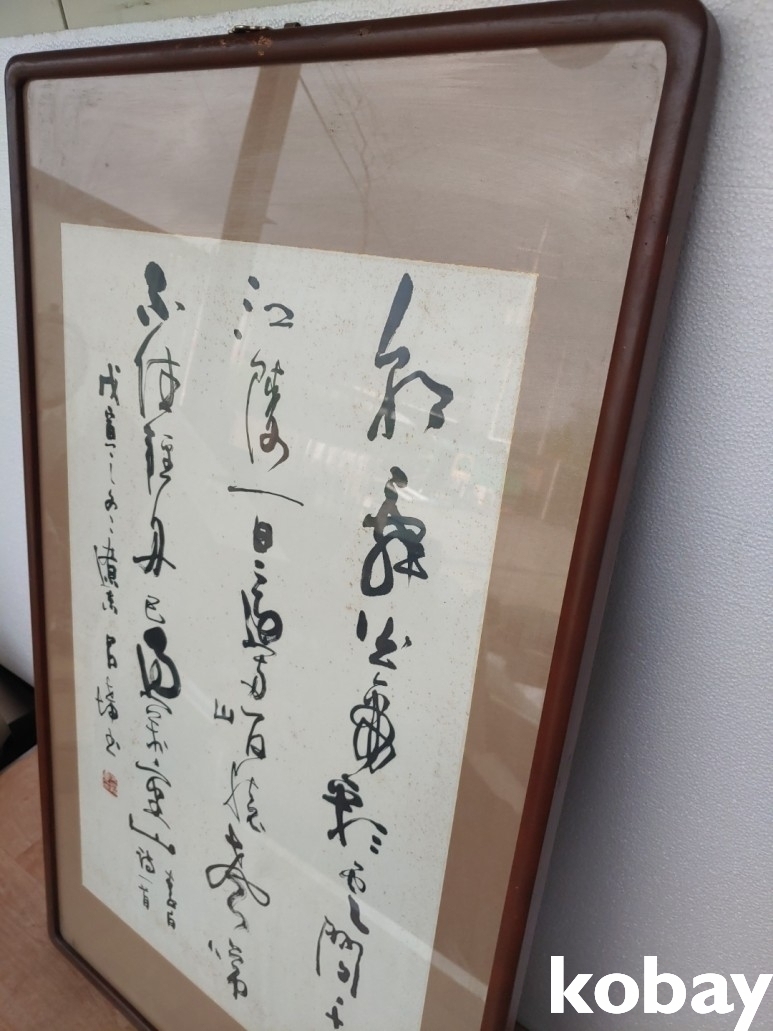 朝辭白帝彩雲間千
江陵一日還兩岸猿聲啼
不住輕舟已過萬重山
戊寅
kobay